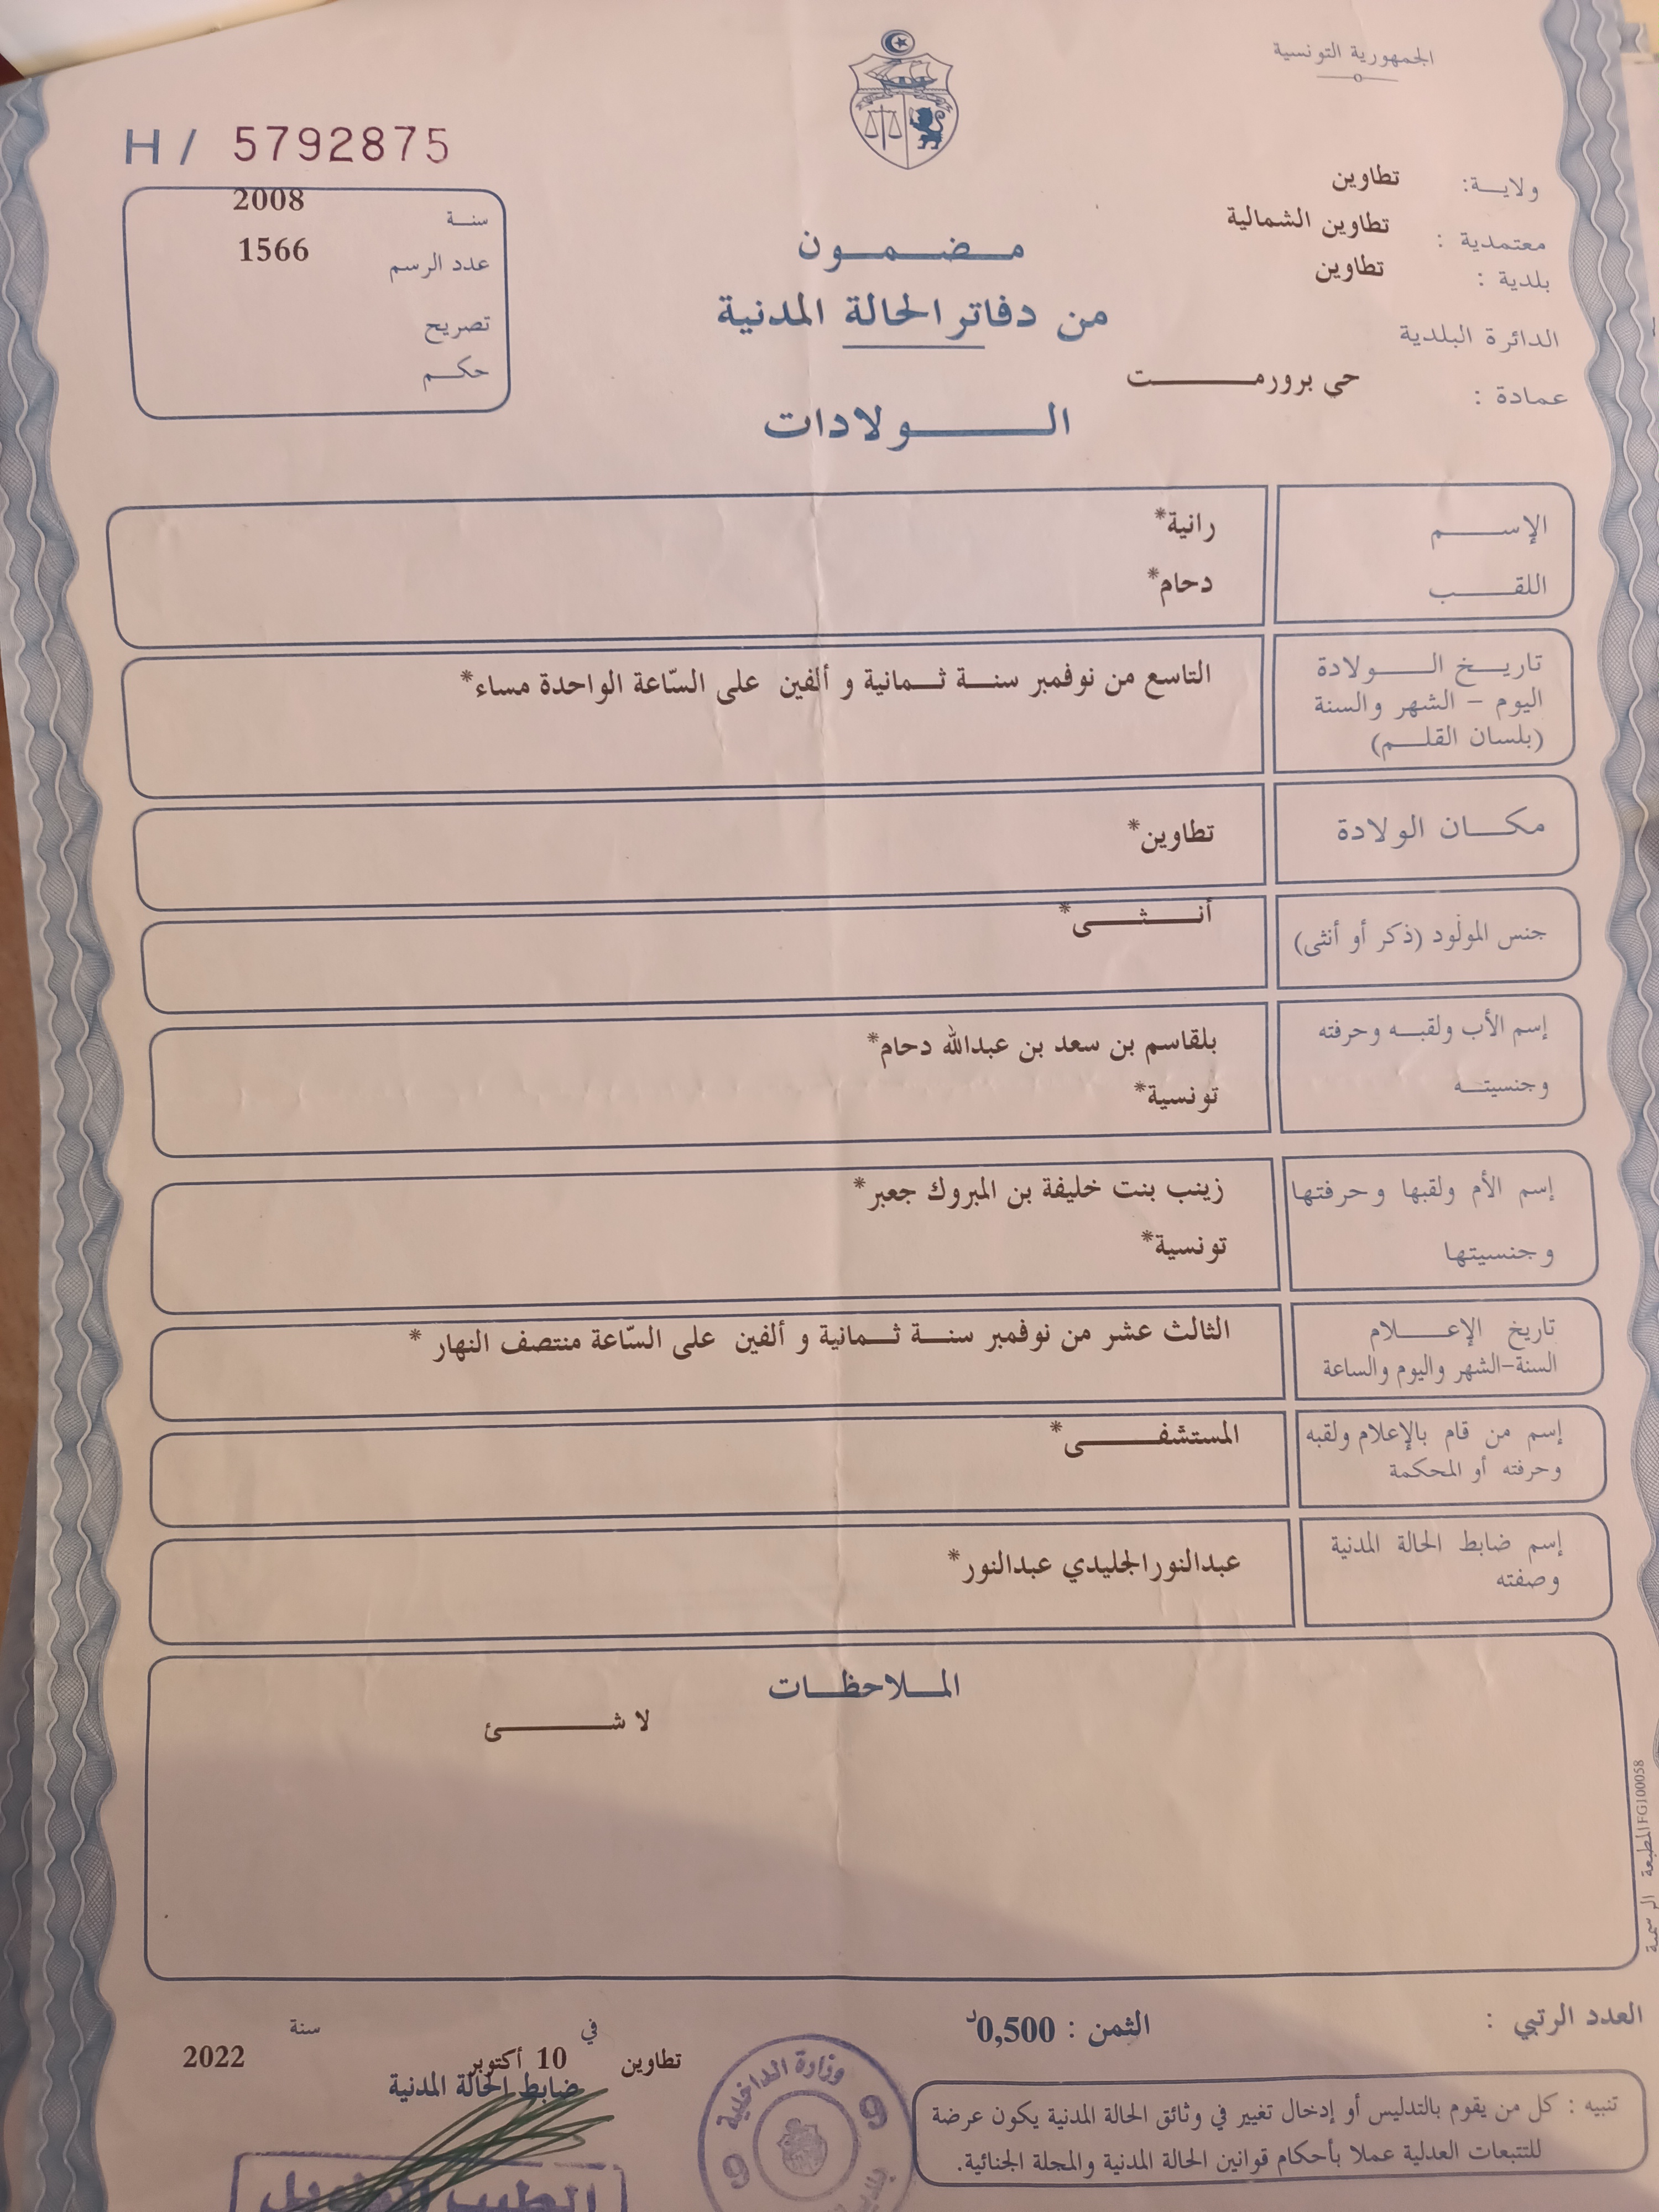 الجمهورية التونسية
H / 5792875
ولايـــة: تطاوين
معتمدية : تطاوين الشمالية
بلدية : تطاوين
الدائرة البلدية
عمادة : حي برورمـــــت
سنـــة 2008
عدد الرسم 1566
تصريح
حكـــم
مـــضـــمـــون
من دفاتر الحالة المدنية
الـــــولادات
الإســـــم رانية*
اللقـــــب دحام*
تاريـــخ الـــــولادة
اليوم - الشهر والسنة
(بلسان القلـــم)
التاسع من نوفمبر سنـــة ثـــمانية و ألفين على السّاعة الواحدة مساء*
مكـــان الولادة تطاوين*
جنس المولود (ذكر أو أنثى) أنـــثـــى*
إسم الأب ولقبـــه وحرفته بلقاسم بن سعد بن عبدالله دحام*
وجنسيتـــه تونسية*
إسم الأم ولقبها وحرفتها زينب بنت خليفة بن المبروك جعبر*
وجنسيتها تونسية*
تاريخ الإعـــــلام
السنة-الشهر واليوم والساعة
الثالث عشر من نوفمبر سنـــة ثـــمانية و ألفين على السّاعة منتصف النهار *
إسم من قام بالإعلام ولقبه
وحرفته أو المحكمة
المستشفـــــى*
إسم ضابط الحالة المدنية
وصفته
عبدالنور الجليدي عبدالنور*
المـــلاحظـــات
لا شـــــئ
المطبعة الرسمية FG100058
العدد الرتبي :
الثمن : 0,500د
تطاوين في 10 أكتوبر سنة 2022
ضابط الحالة المدنية
وزارة الداخلية
9 9
تنبيه : كل من يقوم بالتدليس أو إدخال تغيير في وثائق الحالة المدنية يكون عرضة
للتتبعات العدلية عملا بأحكام قوانين الحالة المدنية والمجلة الجنائية.